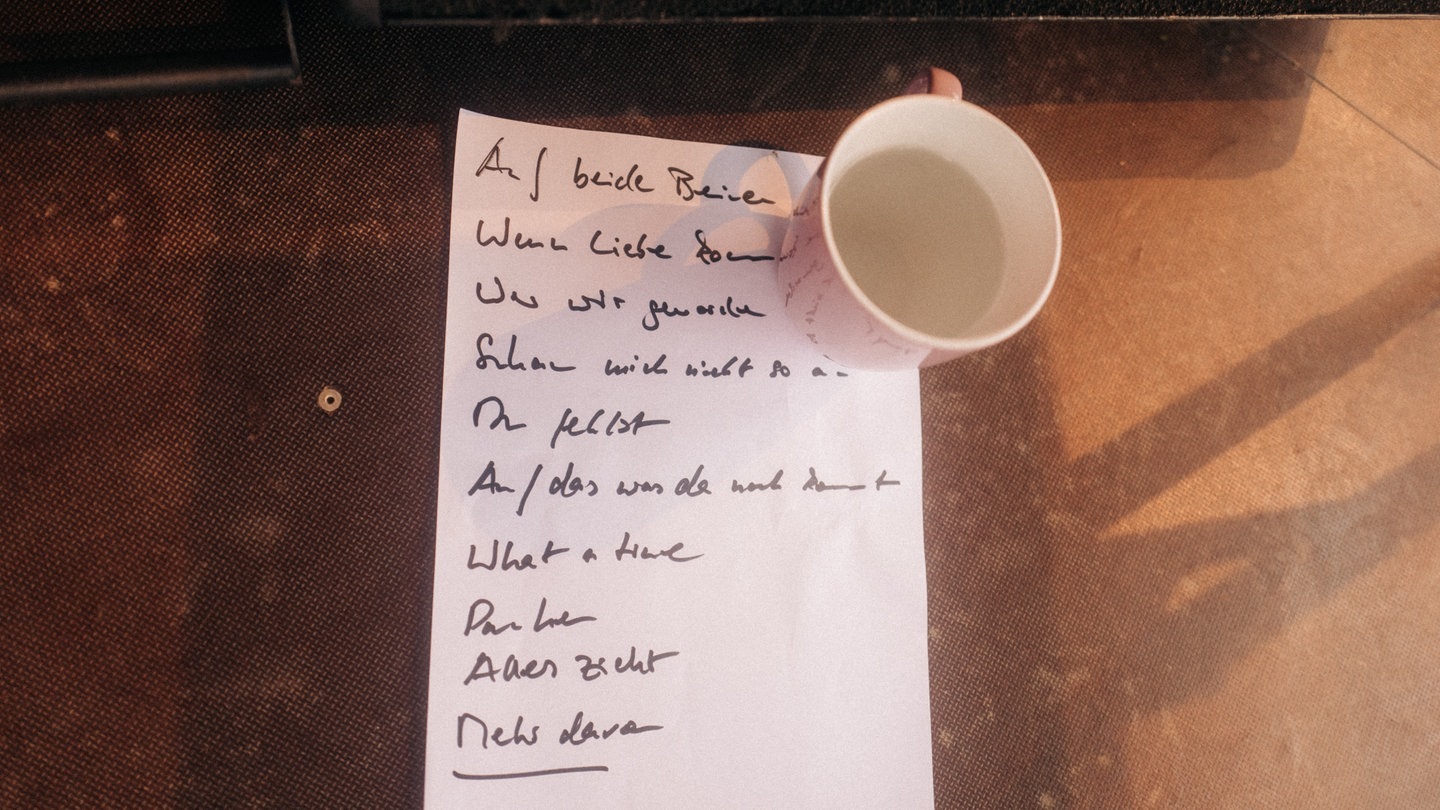 Auf beide Beinen
Wenn Liebe komm
Was wir geworden
Schau mich nicht so a
Du fehlst
Auf das was da noch kommt
What a time
Alles zieht
Mehr davon